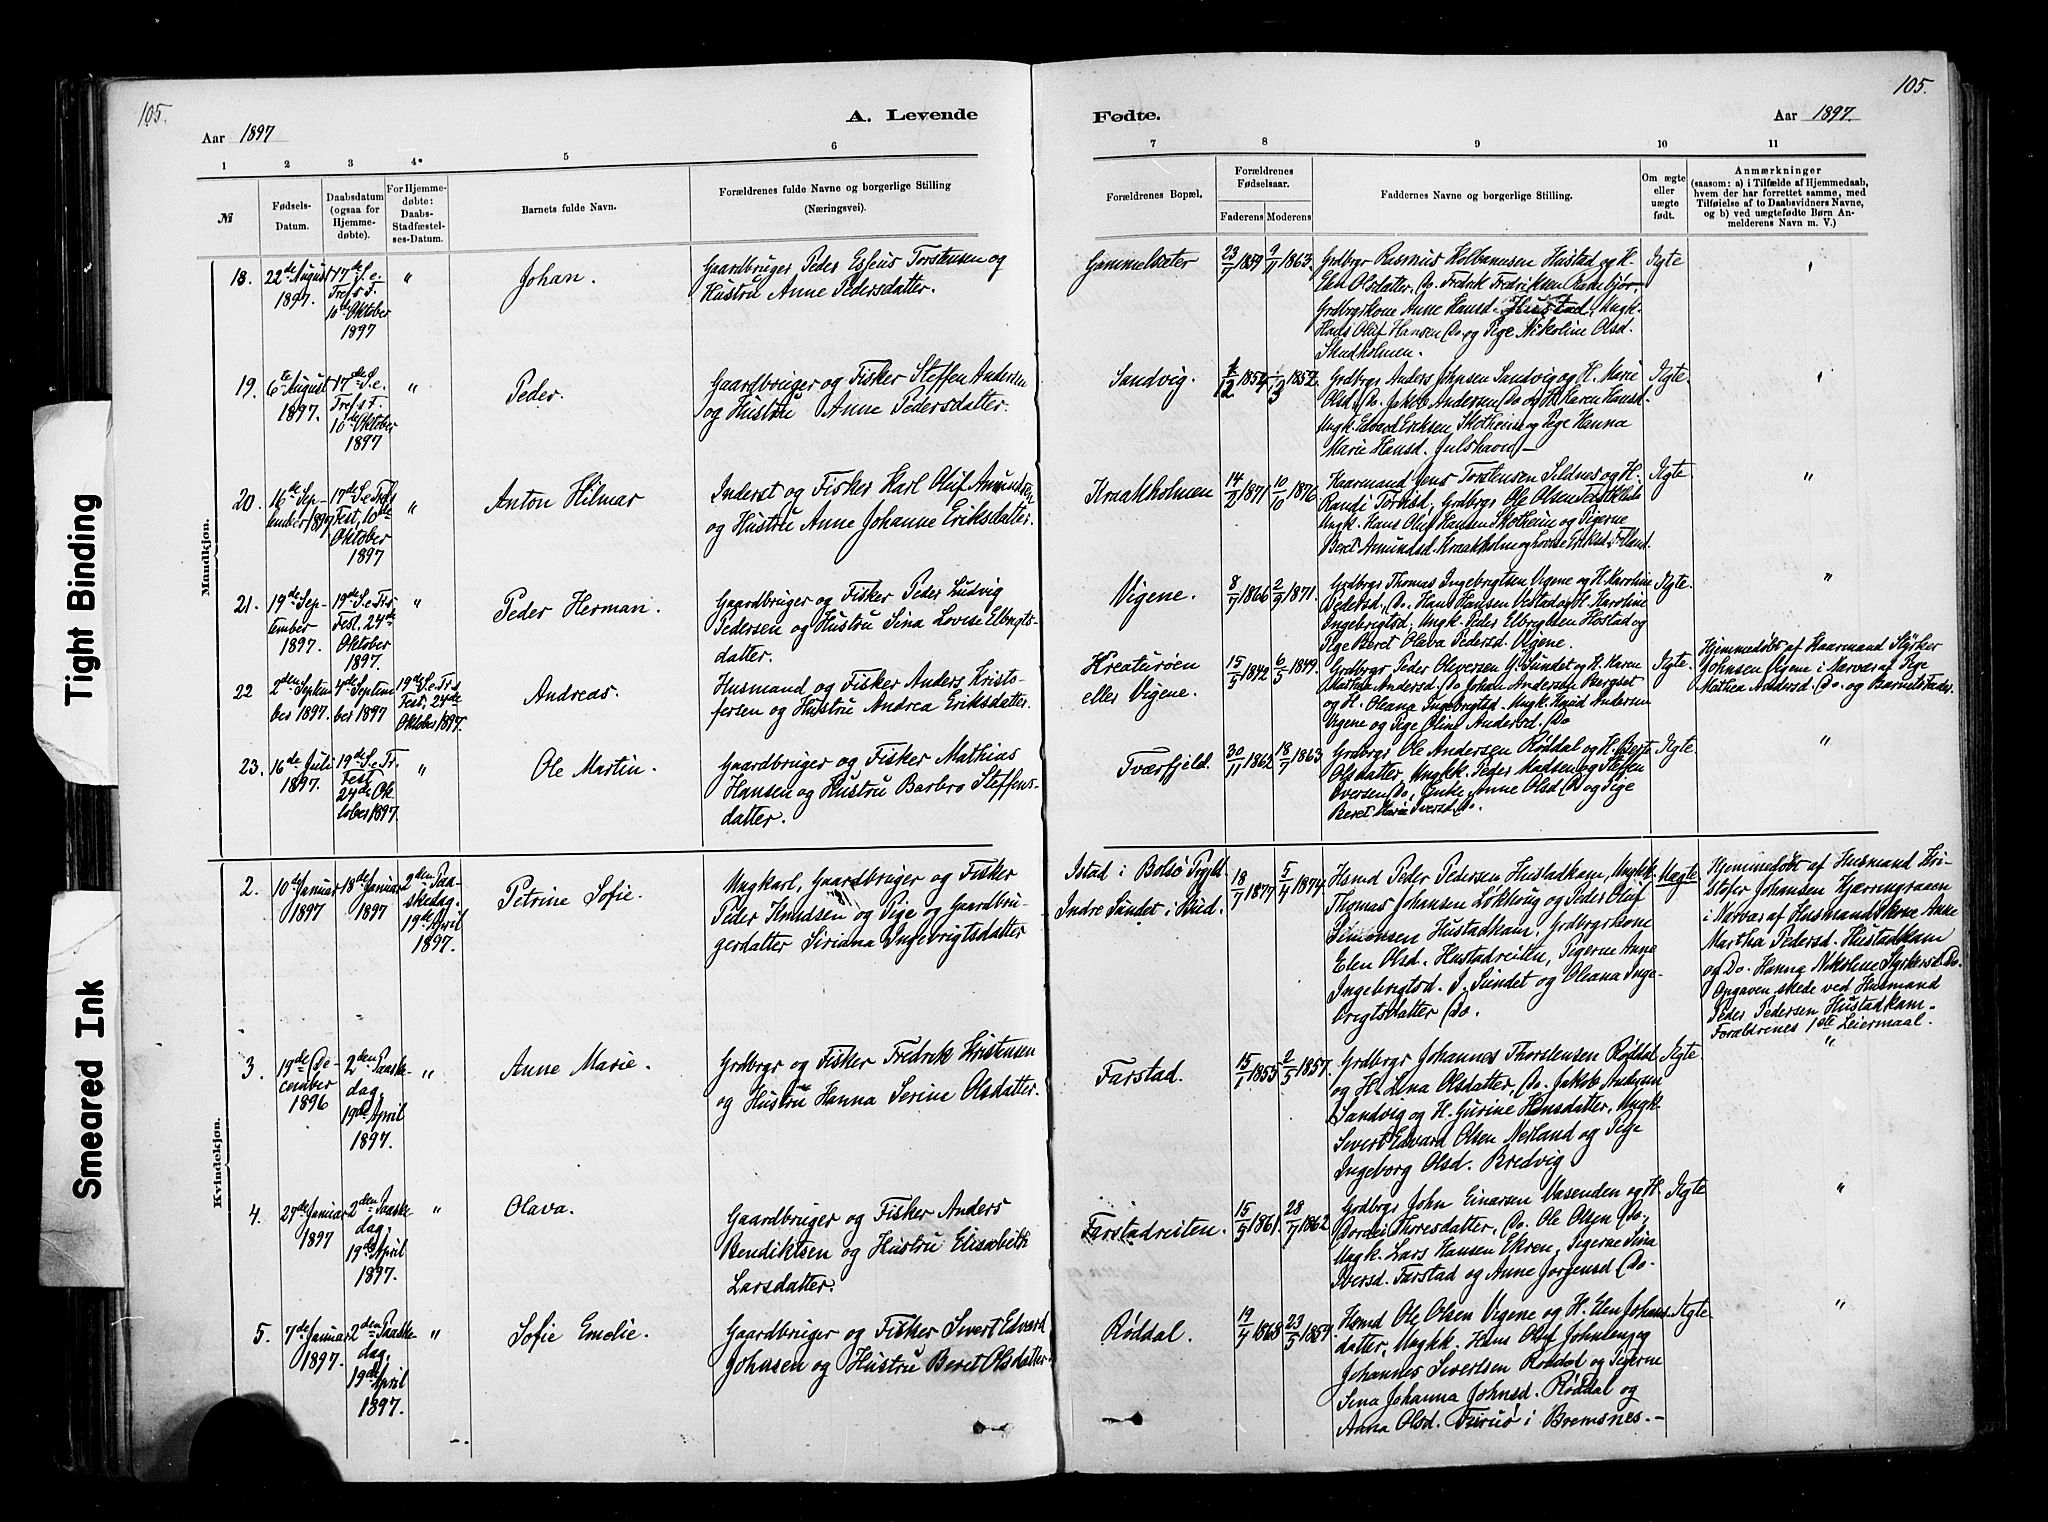 105.
Aar 1897
A. Levende
1 2 3 4* 5 6
№
Fødsels-
Datum.
Daabsdatum
(ogsaa for
Hjemme-
døbte).
For Hjemme-
døbte:
Daabs-
Stadfæstel-
ses-Datum.
Barnets fulde Navn.
Forældrenes fulde Navne og borgerlige Stilling
(Næringsvei).
Mandkjøn.
18.
22de August
1897.
17de S. e.
Tref. s. F.
10de Oktober
1897
"
Johan.
Gaardbruger Peder Torstensen og
Hustru Anne Pedersdatter.
19.
6te August
1897.
17de S. e.
Tref. s. F.
10de Oktober
1897
"
Peder.
Gaardbruger og Fisker Steffen Andersen
og Hustru Anne Pedersdatter.
20.
16de Sep-
tember 1897
17de S. e. Trfs
Fest, 10de
Oktober
1897
"
Anton Hilmar
Inderst og Fisker Karl Oluf Amundsen
og Hustru Anne Johanne Eriksdatter.
21.
19de Sep-
tember
1897.
19de S. e. Trfs
Fest. 24de
Oktober
1897.
"
Peder Herman.
Gaardbruger og Fisker Peder Ludvig
Pedersen og Hustru Sina Lovise Elbrigts-
datter.
22
2den Septem
ber 1897.
4de Septem
ber 1897
19de S. e. Trs
Fest, 24de
Oktober 1897.
Andreas.
Husmand og Fisker Anders Kristo-
fersen og Hustru Andrea Eriksdatter.
23.
16de Juli
1897.
19de S. e. Tr.
Fest
24de Ok
tober 1897.
"
Ole Martin.
Gaardbruger og Fisker Mathias
Hansen og Hustru Barbro Steffens-
datter.
Kvindekjøn.
2.
10de Januar
1897
18de Januar
1897
2den Paa-
skedag.
19de April
1897.
Petrine Sofie.
Ungkarl, Gaardbruger og Fisker
Peder Knudsen og Pige og Gaardbru-
gerdatter Siriana Ingebrigtsdatter
3.
19de De-
cember
1896
2den Paaske-
dag,
19de April
1897.
"
Anne Marie.
Grdbrgr og Fisker Fredrik Kristensen
og Hustru Hanna Serine Olsdatter.
4.
27de Januar
1897
2den Paaske
dag,
19de April
1897.
"
Olava.
Gaardbruger og Fisker Anders
Bendiktsen og Hustru Elisabeth
Larsdatter.
5.
7de Januar
1897.
2den Paaske
dag,
19de April
1897.
"
Sofie Emelie.
Gaardbruger og Fisker Sivert Edvard
Johnsen og Hustru Beret Olsdatter.
105.
Fødte.
Aar 1897.
7 8 9 10 11
Forældrenes Bopæl.
Forældrenes
Fødselsaar.
Faderens Moderens
Faddernes Navne og borgerlige Stilling.
Om ægte
eller
uægte
født.
Anmærkninger
(saasom: a) i Tilfælde af Hjemmedaab,
hvem der har forrettet samme, med
Tilføielse af to Daabsvidners Navne,
og b) ved uægtefødte Børn An-
melderens Navn m. V.)
Gammelsæter
23/7 1859
9/11 1863.
Grdbrgr Rasmus Hustad og H.
Elen Olsdatter, Do. Fredrik Fredriksen
Grdbrgrskone Anne Hansd. Hustad, Ungk.
Hans Oluf Hansen Do. og Pige Nikoline Olsd.
Skudholmen.
Ægte
Sandvig.
1852
1852.
Grdbrgr Anders Johnsen Sandvig og H. Marie
Olsd, Do. Jakob Andersen Do og H. Karen Hansd.
Ungk. Edvard Eriksen, Skotheim og Pige Hanna
Marie Hansd. Julshavn
Ægte.
Kraakholmen
14/2 1871
10/10 1876
Haarmand Jens Torstensen Sildnes og H.
Randi Torkild, Grdbrgr Ole Olsen
Ungk. Hans Oluf Hansen Skotheim og Pigerne
Beret Amundsd. Kraakholm og Lovise Eriksd.
Ægte
"
Vigene.
8/7 1866
2/9 1871.
Grdbrgr Thomas Ingebrigtsen Vigene og H. Karoline
Pedersd, Do. Hans Hansen Vestad og H. Karoline
Ingebrigtsd, Ungk. Peder Elbrigtsen Hostad og
Pige Beret Olava Pedersd. Vigene.
Ægte.
"
Kreaturøen
eller Vigene.
15/5 1842
6/5 1849.
Grdbrgr Peder Olversen Y. Sundet og H. Karen
Mathea Andersd. Do Johan Andersen Bergset
og H. Oleana Ingebrigtsd. Ungk. Knud Andersen
Vigene og Pige Oline Andersd. Do
Ægte.
Hjemmedøbt af Haarmand Styrker
Johnsen Vigene i Nærvær af Pige
Mathea Andersd. Do. og Barnets Fader.
Tværfjeld.
30/11 1862
18/7 1863
Grdbrgr Ole Andersen Røddal og H. Berte
Olsdatter, Ungkk. Peder Madsen og Steffen
Iversen Do, Enke Anne Olsd. Do og Pige
Beret Marie Iversd, Do.
Ægte.
"
Istad i Bolsø Prgld.
Indre Sundet i Bud.
18/7 1877
5/4 1874.
Hsmd Peder Pedersen Hustadkam, Ungkk
Thomas Johansen Løkhoug og Peder Oluf
Simonsen Hustadkam, Grdbrgrskone
Elen Olsd. Hustadreiten, Pigerne Anne
Ingebrigtsd. I. Sundet og Oleana Inge-
brigtsdatter Do.
Uægte
Hjemmedøbt af Husmand Kri-
stofer Johansen Kjærringraaen
i Nærvær af Husmandskone Anne
Martha Pedersd. Hustadkam
og Do. Hanna Nikoline Styrkersd. Do.
Opgaven skede ved Husmand
Peder Pedersen Hustadkam.
Forældrenes 1ste Leiermaal.
Farstad.
15/1 1855
2/5 1857.
Grdbrgr Johannes Thorstensen Røddal
og H. Lina Olsdatter, Do. Jakob Andersen
Sandvig og H. Gurine Hansdatter, Ungk.
Sivert Edvard Olsen Nesland og Pige
Ingeborg Olsd. Bredvig
Ægte
"
Farstadreiten.
15/9 1861.
28/7 1862
Grdbrgr John Einarsen Vasenden og H.
Dordei Thoresdatter, Do. Ole Olsen Do,
Ungk. Lars Hansen Ekren, Pigerne Sina
Iversd. Farstad og Anne Jorgensd. Do.
Ægte
"
Røddal.
19/4 1868
23/5 1859.
Hsmd Ole Olsen Vigene og H. Elen Johans-
datter, Ungkk. Hans Oluf Johnsen og
Johannes Sivertsen Røddal og Pigerne
Sina Johanna Johnsd. Røddal og
Anna Olsd. Futsø i Bremsnes.
Ægte
"
Tight Binding
Smeared Ink